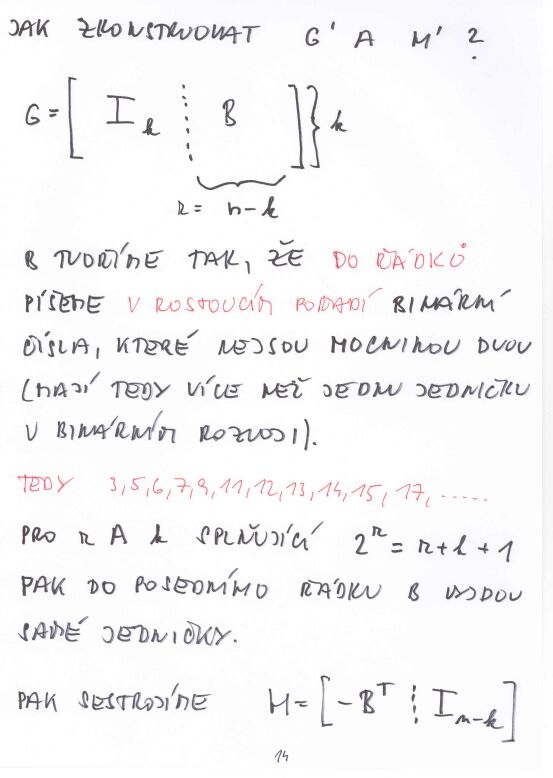 JAK ZKONSTRUOVAT G' A M' ?
G = [ I_k ⋮ B ] } k
r = n-k
B TVOŘÍME TAK, ŽE DO ŘÁDKŮ
PÍŠEME V ROSTOUCÍM POŘADÍ BINÁRNÍ
ČÍSLA, KTERÉ NEJSOU MOCNINOU DVOU
(MAJÍ TEDY VÍCE NEŽ JEDNU JEDNIČKU
V BINÁRNÍM ROZVOJI).
TEDY 3,5,6,7,9,11,12,13,14,15,17,.....
PRO r A k SPLŇUJÍCÍ 2^r = r+k+1
PAK DO POSEDNÍHO ŘÁDKU B VYJDOU
SAMÉ JEDNIČKY.
PAK SESTROJÍME H = [ -B^T ⋮ I_{n-k} ]
14